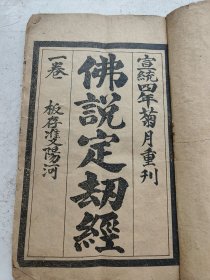 宣統四年菊月重刊
佛說定劫經
一卷
板存雙陽河